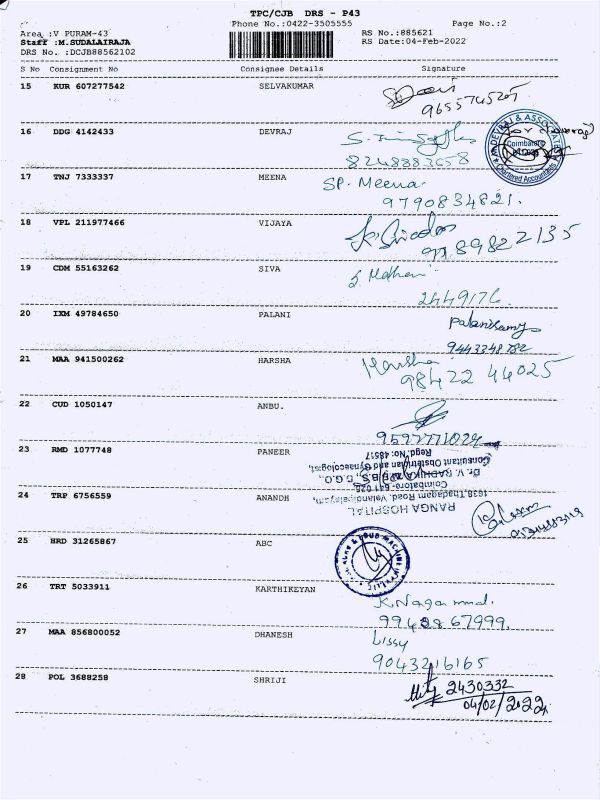 TPC/CJB DRS - P43
Phone No.:0422-3505555
Page No.:2
Area :V PURAM-43
RS No.:885621
Staff :M.SUDALAIRAJA
RS Date:04-Feb-2022
DRS No. :DCJB88562102
S No Consignment No Consignee Details Signature
15 KUR 607277542 SELVAKUMAR
16 DDG 4142433 DEVRAJ
8248883658
DEVRAJ & ASSOCIATES
Coimbatore
Chartered Accountants
17 TNJ 7333337 MEENA
SP. Meena
9790834821.
18 VPL 211977466 VIJAYA
19 CDM 55163262 SIVA
2449176.
20 IXM 49784650 PALANI
Palanisamy
9443348782
21 MAA 941500262 HARSHA
Harsha
98422 44025
22 CUD 1050147 ANBU.
23 RMD 1077748 PANEER
RANGA HOSPITAL
1638, Thadagam Road, Velandipalayam,
Coimbatore- 641 025
Dr. V. RADHIKA
Consultant Obstetrician and Gynaecologist,
Regd.No: 48517
24 TRP 6756559 ANANDH
25 HRD 31265867 ABC
26 TRT 5033911 KARTHIKEYAN
99438 67999,
27 MAA 856800052 DHANESH
Lissy
9043216165
28 POL 3688258 SHRIJI
2430332
04/02/2022